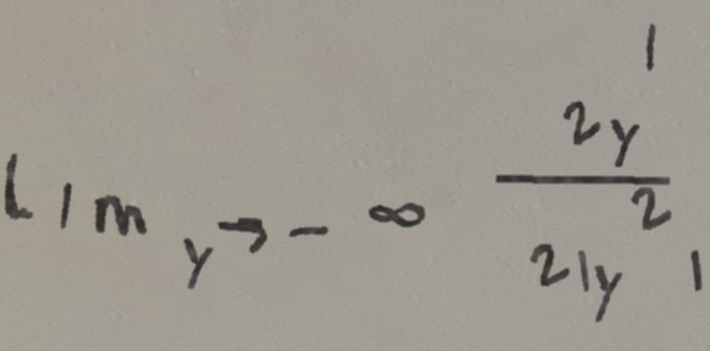 lim y→-∞ 2y^1 / 21y^2 1